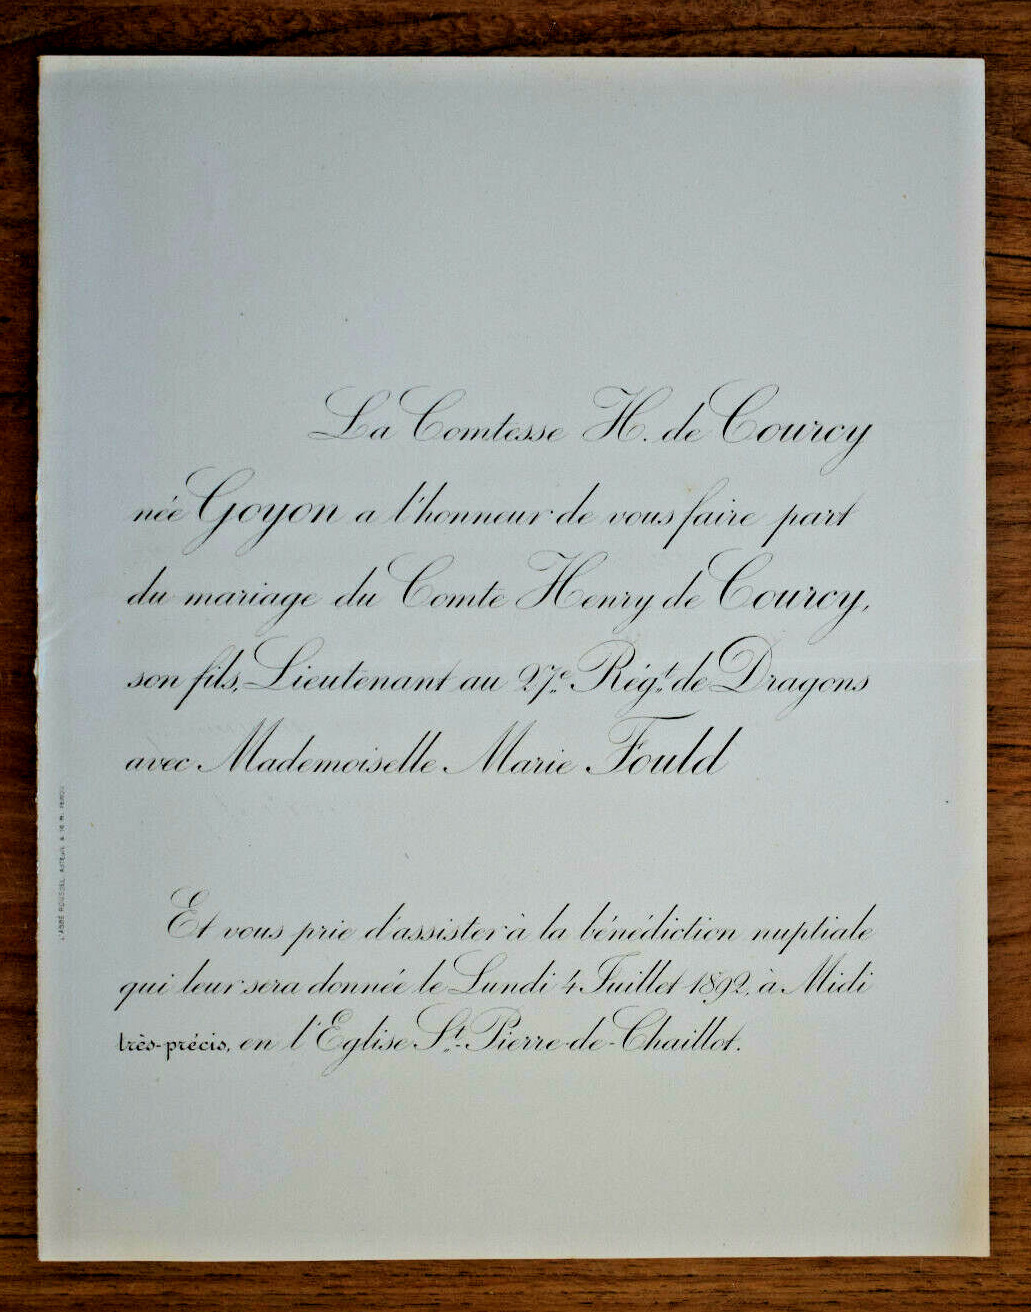 La Comtesse H. de Courcy
née Goyon a l'honneur de vous faire part
du mariage du Comte Henry de Courcy,
son fils, Lieutenant au 27e Régt de Dragons
avec Mademoiselle Marie Fould
Et vous prie d'assister à la bénédiction nuptiale
qui leur sera donnée le Lundi 4 Juillet 1892, à Midi
très-précis, en l'Eglise St-Pierre-de-Chaillot.
L'ABBÉ ROUSSEL, AUTEUIL &